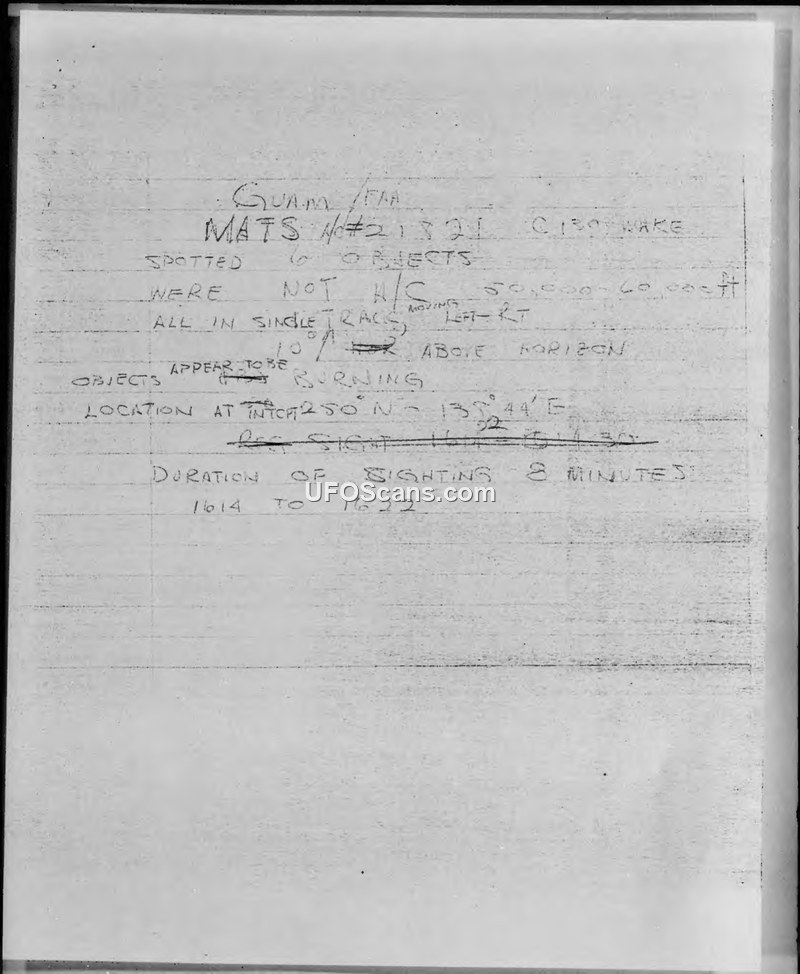 GUAM/FAA
MATS NO#21821 C130 WAKE
SPOTTED 6 OBJECTS
WERE NOT A/C 50,000-60,000 ft
ALL IN SINGLE TRACK, MOVING LEFT-RT
10° ABOVE HORIZON
OBJECTS APPEAR TO BE BURNING
LOCATION AT 250° N - 135° 44' E
SIGHT
22
DURATION OF SIGHTING 8 MINUTES
UFOScans.com
1614 TO 1622